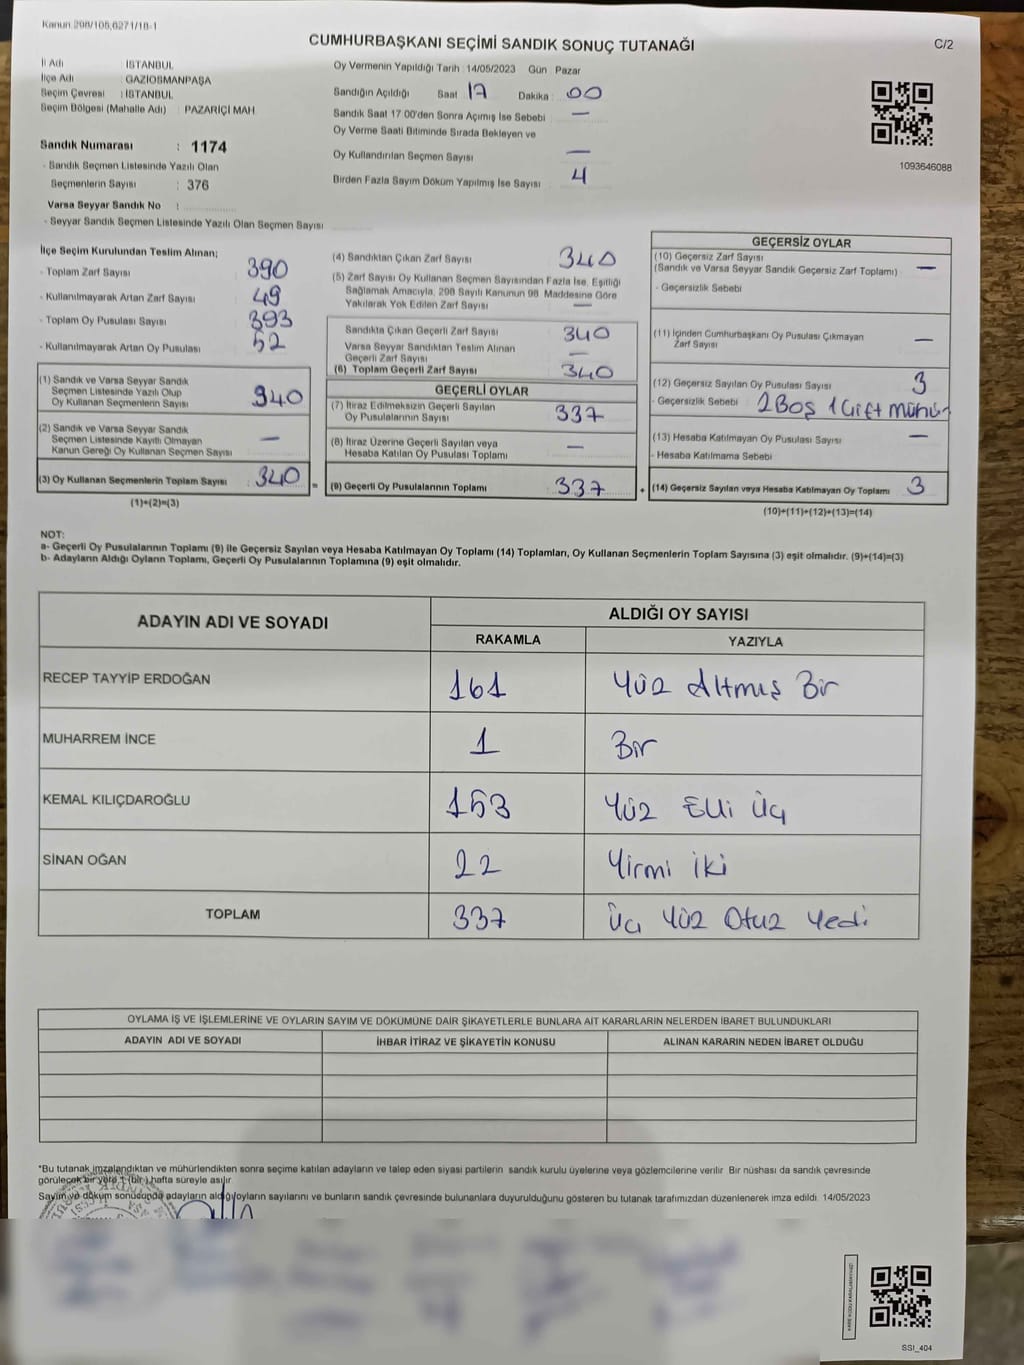 Kanun 298/105,6271/18-1
CUMHURBAŞKANI SEÇİMİ SANDIK SONUÇ TUTANAĞI
C/2
İl Adı : İSTANBUL
İlçe Adı : GAZİOSMANPAŞA
Seçim Çevresi : İSTANBUL
Seçim Bölgesi (Mahalle Adı) : PAZARİÇİ MAH
Sandık Numarası : 1174
- Sandık Seçmen Listesinde Yazılı Olan
Seçmenlerin Sayısı : 376
Varsa Seyyar Sandık No :
- Seyyar Sandık Seçmen Listesinde Yazılı Olan Seçmen Sayısı
Oy Vermenin Yapıldığı Tarih : 14/05/2023 Gün Pazar
Sandığın Açıldığı Saat 17 Dakika : 00
Sandık Saat 17:00'den Sonra Açımış İse Sebebi —
Oy Verme Saati Bitiminde Sırada Bekleyen ve
Oy Kullandırılan Seçmen Sayısı —
Birden Fazla Sayım Döküm Yapılmış İse Sayısı 4
1093646088
İlçe Seçim Kurulundan Teslim Alınan;
- Toplam Zarf Sayısı 390
- Kullanılmayarak Artan Zarf Sayısı 49
- Toplam Oy Pusulası Sayısı 393
- Kullanılmayarak Artan Oy Pusulası 52
(1) Sandık ve Varsa Seyyar Sandık
Seçmen Listesinde Yazılı Olup
Oy Kullanan Seçmenlerin Sayısı 340
(2) Sandık ve Varsa Seyyar Sandık
Seçmen Listesinde Kayıtlı Olmayan
Kanun Gereği Oy Kullanan Seçmen Sayısı —
(3) Oy Kullanan Seçmenlerin Toplam Sayısı : 340 =
(1)+(2)=(3)
(4) Sandıktan Çıkan Zarf Sayısı 340
(5) Zarf Sayısı Oy Kullanan Seçmen Sayısından Fazla İse, Eşitliği
Sağlamak Amacıyla, 298 Sayılı Kanunun 98. Maddesine Göre
Yakılarak Yok Edilen Zarf Sayısı —
Sandıkta Çıkan Geçerli Zarf Sayısı 340
Varsa Seyyar Sandıktan Teslim Alınan
Geçerli Zarf Sayısı —
(6) Toplam Geçerli Zarf Sayısı 340
GEÇERLİ OYLAR
(7) İtiraz Edilmeksizin Geçerli Sayılan
Oy Pusulasının Sayısı 337
(8) İtiraz Üzerine Geçerli Sayılan veya
Hesaba Katılan Oy Pusulası Toplamı —
(9) Geçerli Oy Pusulalarının Toplamı 337 +
GEÇERSİZ OYLAR
(10) Geçersiz Zarf Sayısı
(Sandık ve Varsa Seyyar Sandık Geçersiz Zarf Toplamı) —
- Geçersizlik Sebebi
(11) İçinden Cumhurbaşkanı Oy Pusulası Çıkmayan
Zarf Sayısı —
(12) Geçersiz Sayılan Oy Pusulası Sayısı 3
- Geçersizlik Sebebi 2 Boş 1 Çift mühür
(13) Hesaba Katılmayan Oy Pusulası Sayısı —
- Hesaba Katılmama Sebebi
(14) Geçersiz Sayılan veya Hesaba Katılmayan Oy Toplamı 3
(10)+(11)+(12)+(13)=(14)
NOT:
a- Geçerli Oy Pusulalarının Toplamı (9) ile Geçersiz Sayılan veya Hesaba Katılmayan Oy Toplamı (14) Toplamları, Oy Kullanan Seçmenlerin Toplam Sayısına (3) eşit olmalıdır. (9)+(14)=(3)
b- Adayların Aldığı Oyların Toplamı, Geçerli Oy Pusulalarının Toplamına (9) eşit olmalıdır.
ADAYIN ADI VE SOYADI
ALDIĞI OY SAYISI
RAKAMLA YAZIYLA
RECEP TAYYİP ERDOĞAN 161 Yüz Altmış Bir
MUHARREM İNCE 1 Bir
KEMAL KILIÇDAROĞLU 153 Yüz Elli Üç
SİNAN OĞAN 22 Yirmi iki
TOPLAM 337 Üç Yüz Otuz Yedi
OYLAMA İŞ VE İŞLEMLERİNE VE OYLARIN SAYIM VE DÖKÜMÜNE DAİR ŞİKAYETLERLE BUNLARA AİT KARARLARIN NELERDEN İBARET BULUNDUKLARI
ADAYIN ADI VE SOYADI İHBAR İTİRAZ VE ŞİKAYETİN KONUSU ALINAN KARARIN NEDEN İBARET OLDUĞU
*Bu tutanak imzalandıktan ve mühürlendikten sonra seçime katılan adayların ve talep eden siyasi partilerin sandık kurulu üyelerine veya gözlemcilerine verilir. Bir nüshası da sandık çevresinde
görülecek bir yere 1 (bir) hafta süreyle asılır
Sayım ve döküm sonucunda adayların aldığı oyların sayılarını ve bunların sandık çevresinde bulunanlara duyurulduğunu gösteren bu tutanak tarafımızdan düzenlenerek imza edildi. 14/05/2023
SSI_404